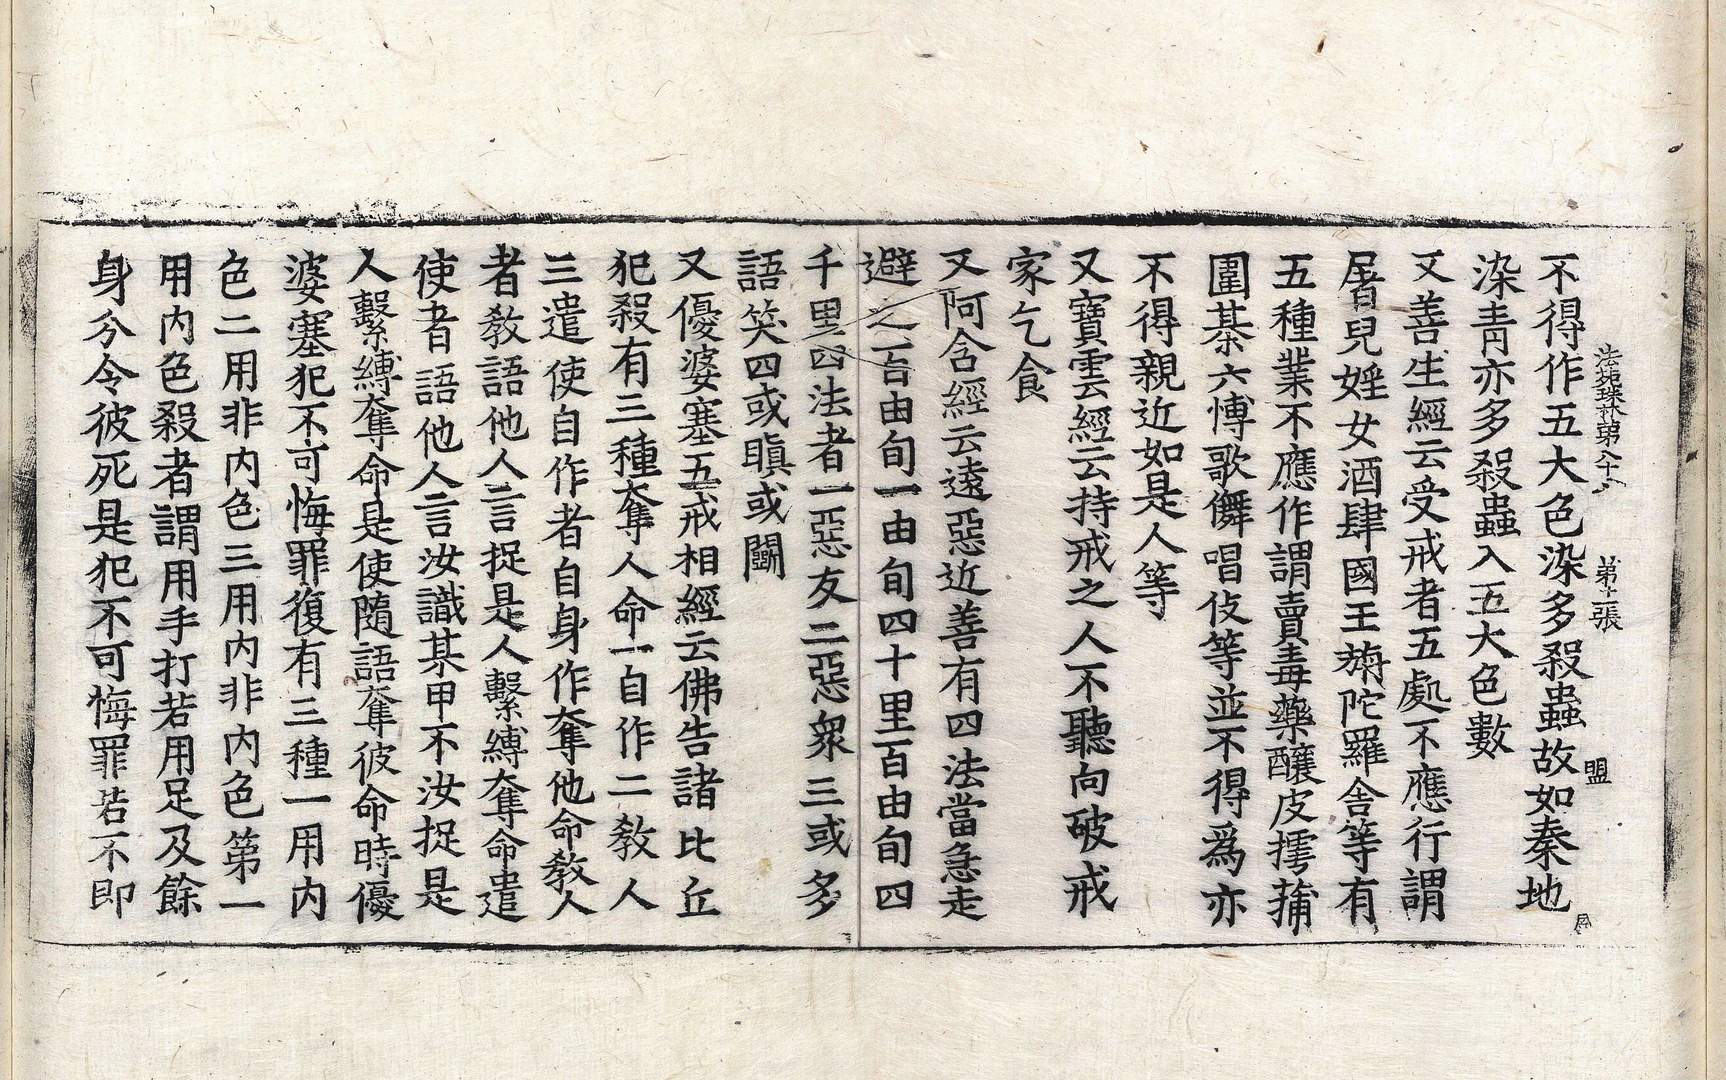 法苑珠林第八十八 第十張 盟
不得作五大色染多殺蟲故如秦地
染青亦多殺蟲入五大色數
又善生經云受戒者五處不應行謂
屠兒婬女酒肆國王旃陀羅舍等有
五種業不應作謂賣毒藥釀皮摴蒱
圍碁六博歌儛唱伎等並不得爲亦
不得親近如是人等
又寶雲經云持戒之人不聽向破戒
家乞食
又阿含經云遠惡近善有四法當急走
避之百由旬一由旬四十里百由旬四
千里四法者一惡友二惡衆三或多
語笑四或瞋或鬪
又優婆塞五戒相經云佛告諸比丘
犯殺有三種奪人命一自作二教人
三遣使自作者自身作奪他命教人
者教語他人言捉是人繫縛奪命遣
使者語他人言汝識某甲不汝捉是
人繫縛奪命是使隨語奪彼命時優
婆塞犯不可悔罪復有三種一用内
色二用非内色三用内非内色第一
用内色殺者謂用手打若用足及餘
身分令彼死是犯不可悔罪若不即